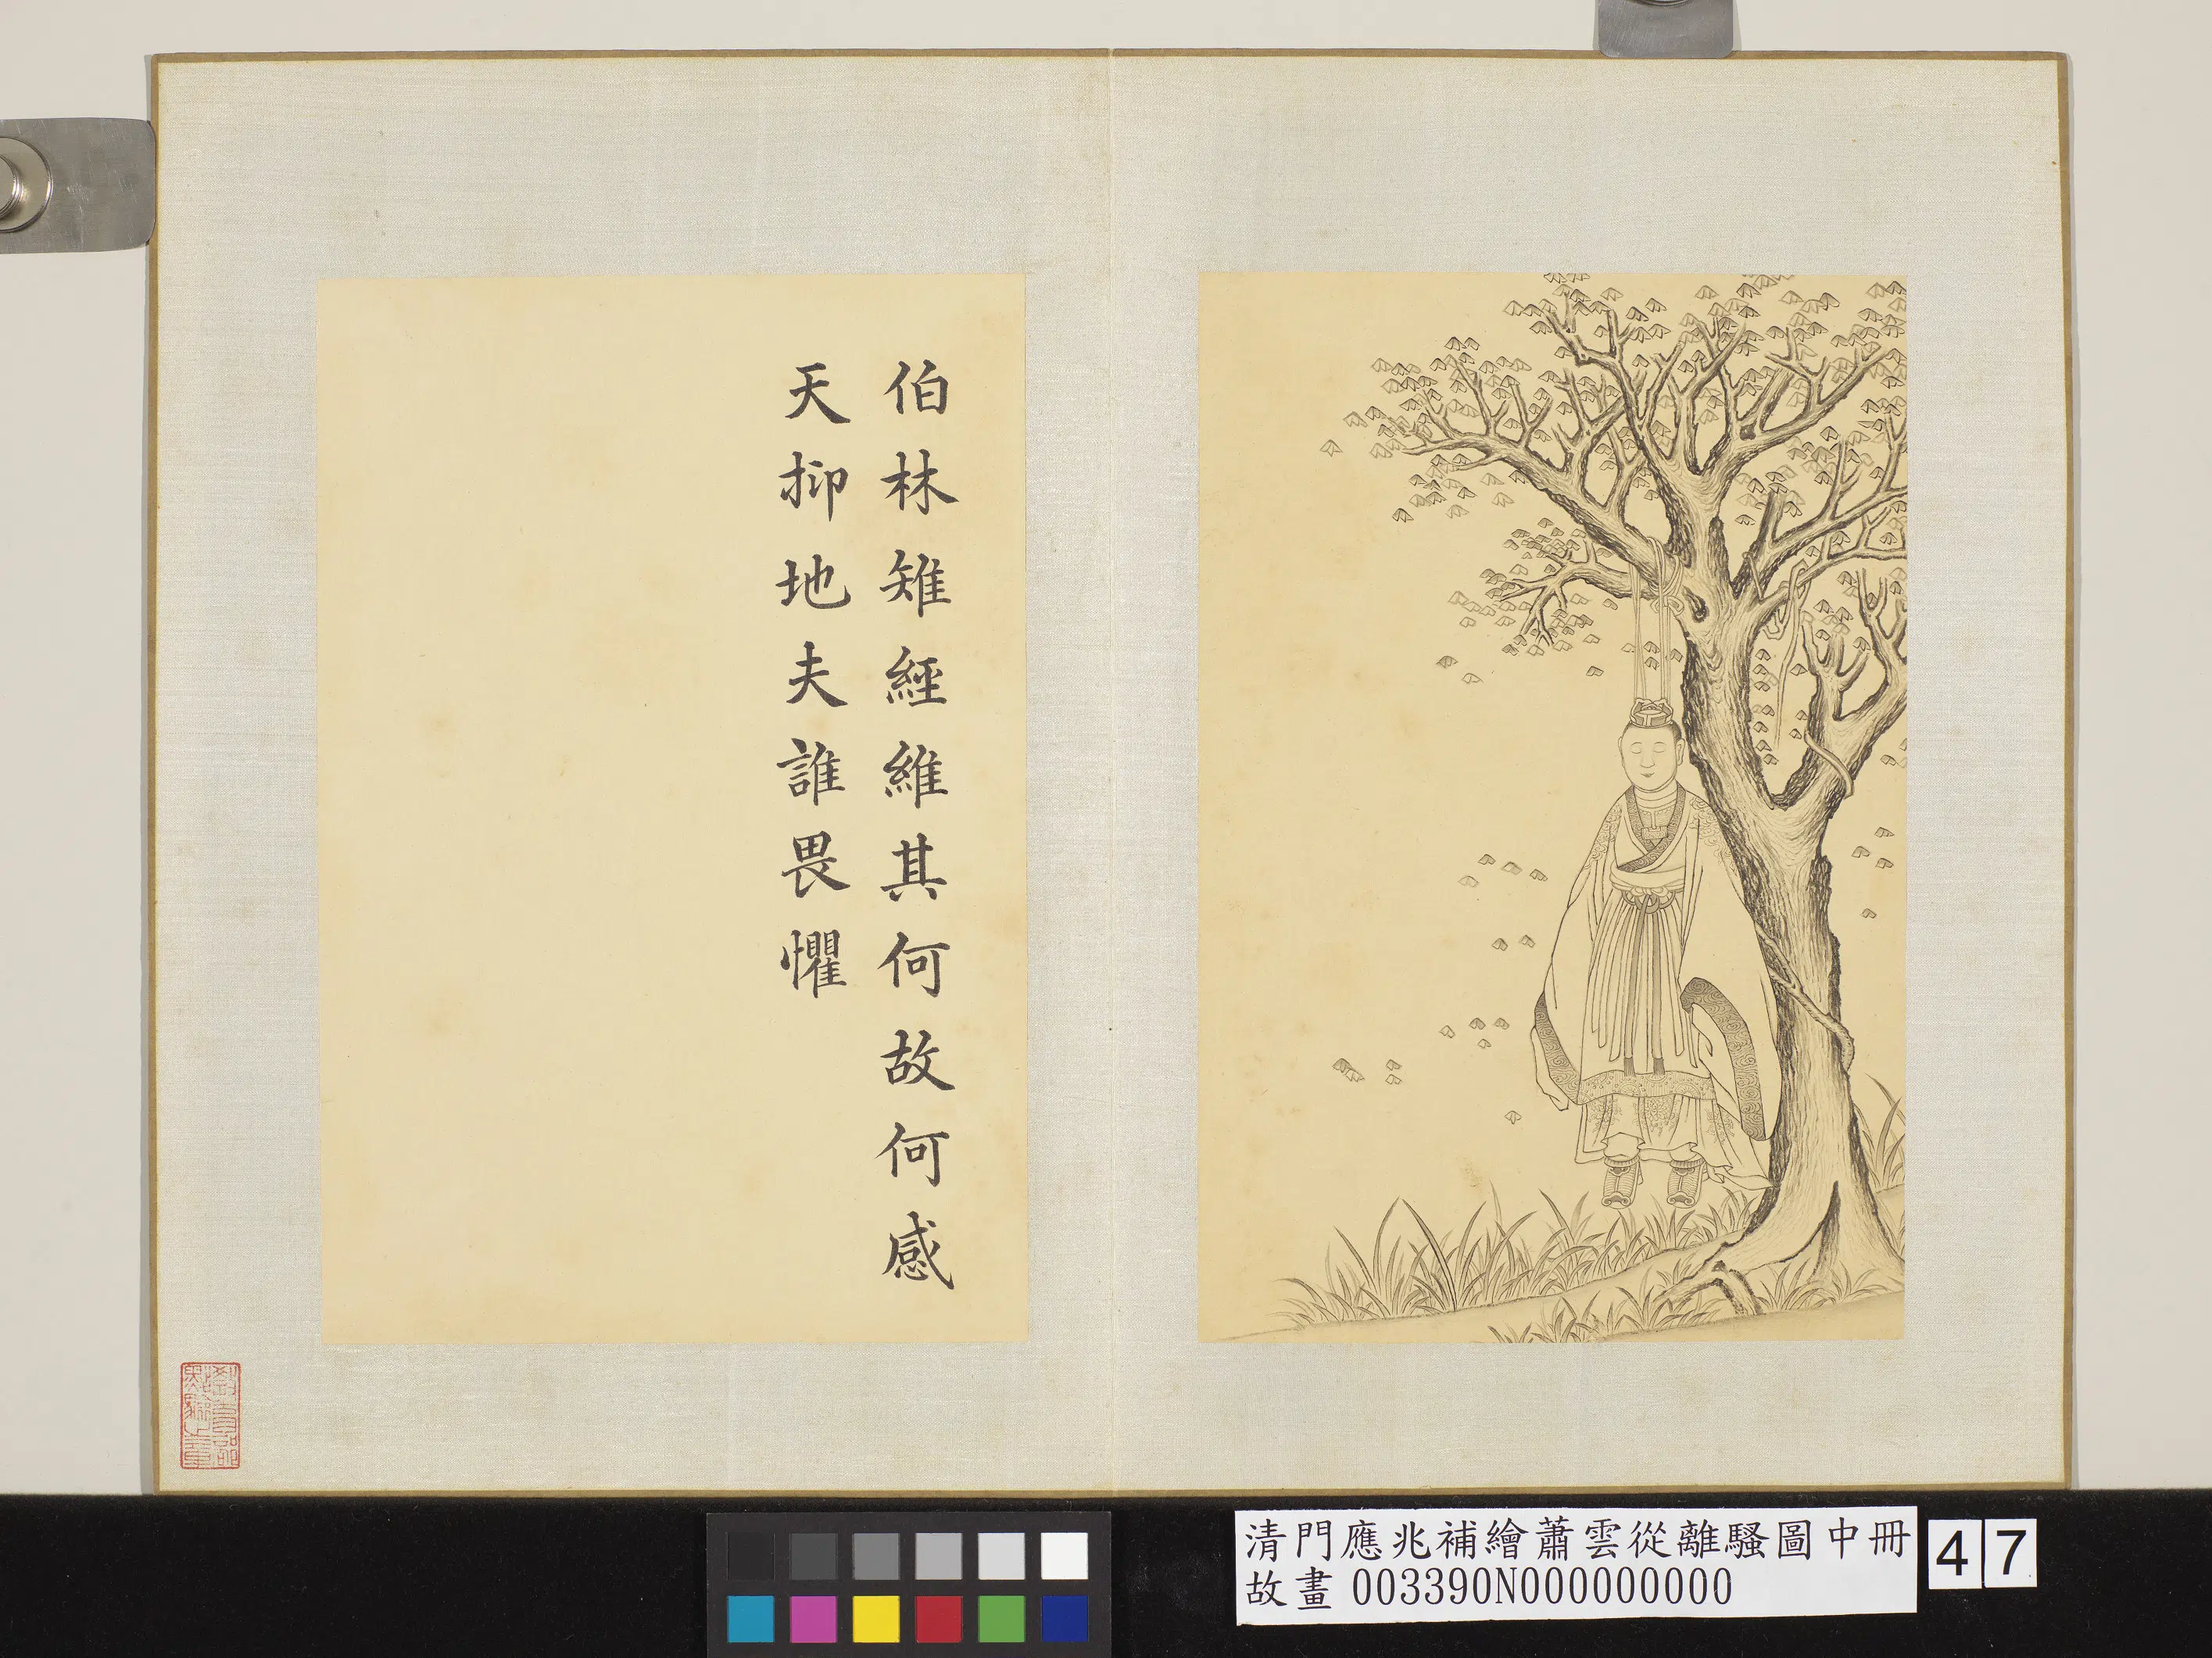 伯林雉經維其何故何感
天抑地夫誰畏懼
清門應兆補繪蕭雲從離騷圖中冊
故畫 003390N000000000
47